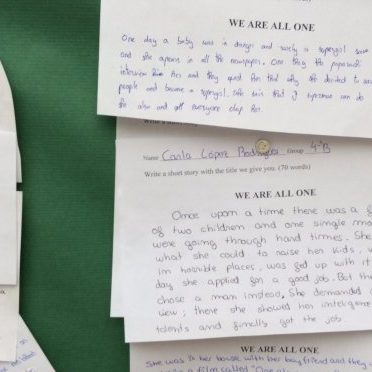 WE ARE ALL ONE
One day a baby was in danger and surely a supergirl save
and she aprears in all the newspaper. One they the paparachi
interview her and they quest her that why she decided to
people and become a supergirl. She said that if everyone can do
she also and all everyone clap her.
Write a short story
Name Carla López Rodríguez Group 4ºB
Write a short story with the title we give you. (70 words)
WE ARE ALL ONE
Once upon a time there was a
of two children and one single
were going through hard times. She
what she could to raise her kids,
in horrible places, was fed up with it
day she applied for a good job. But the
chose a man instead. She demanded
view; there she showed her inteligence
talents and finelly got the job.
WE ARE ALL ONE
She was in her house with her boyfriend and they
a film called "One